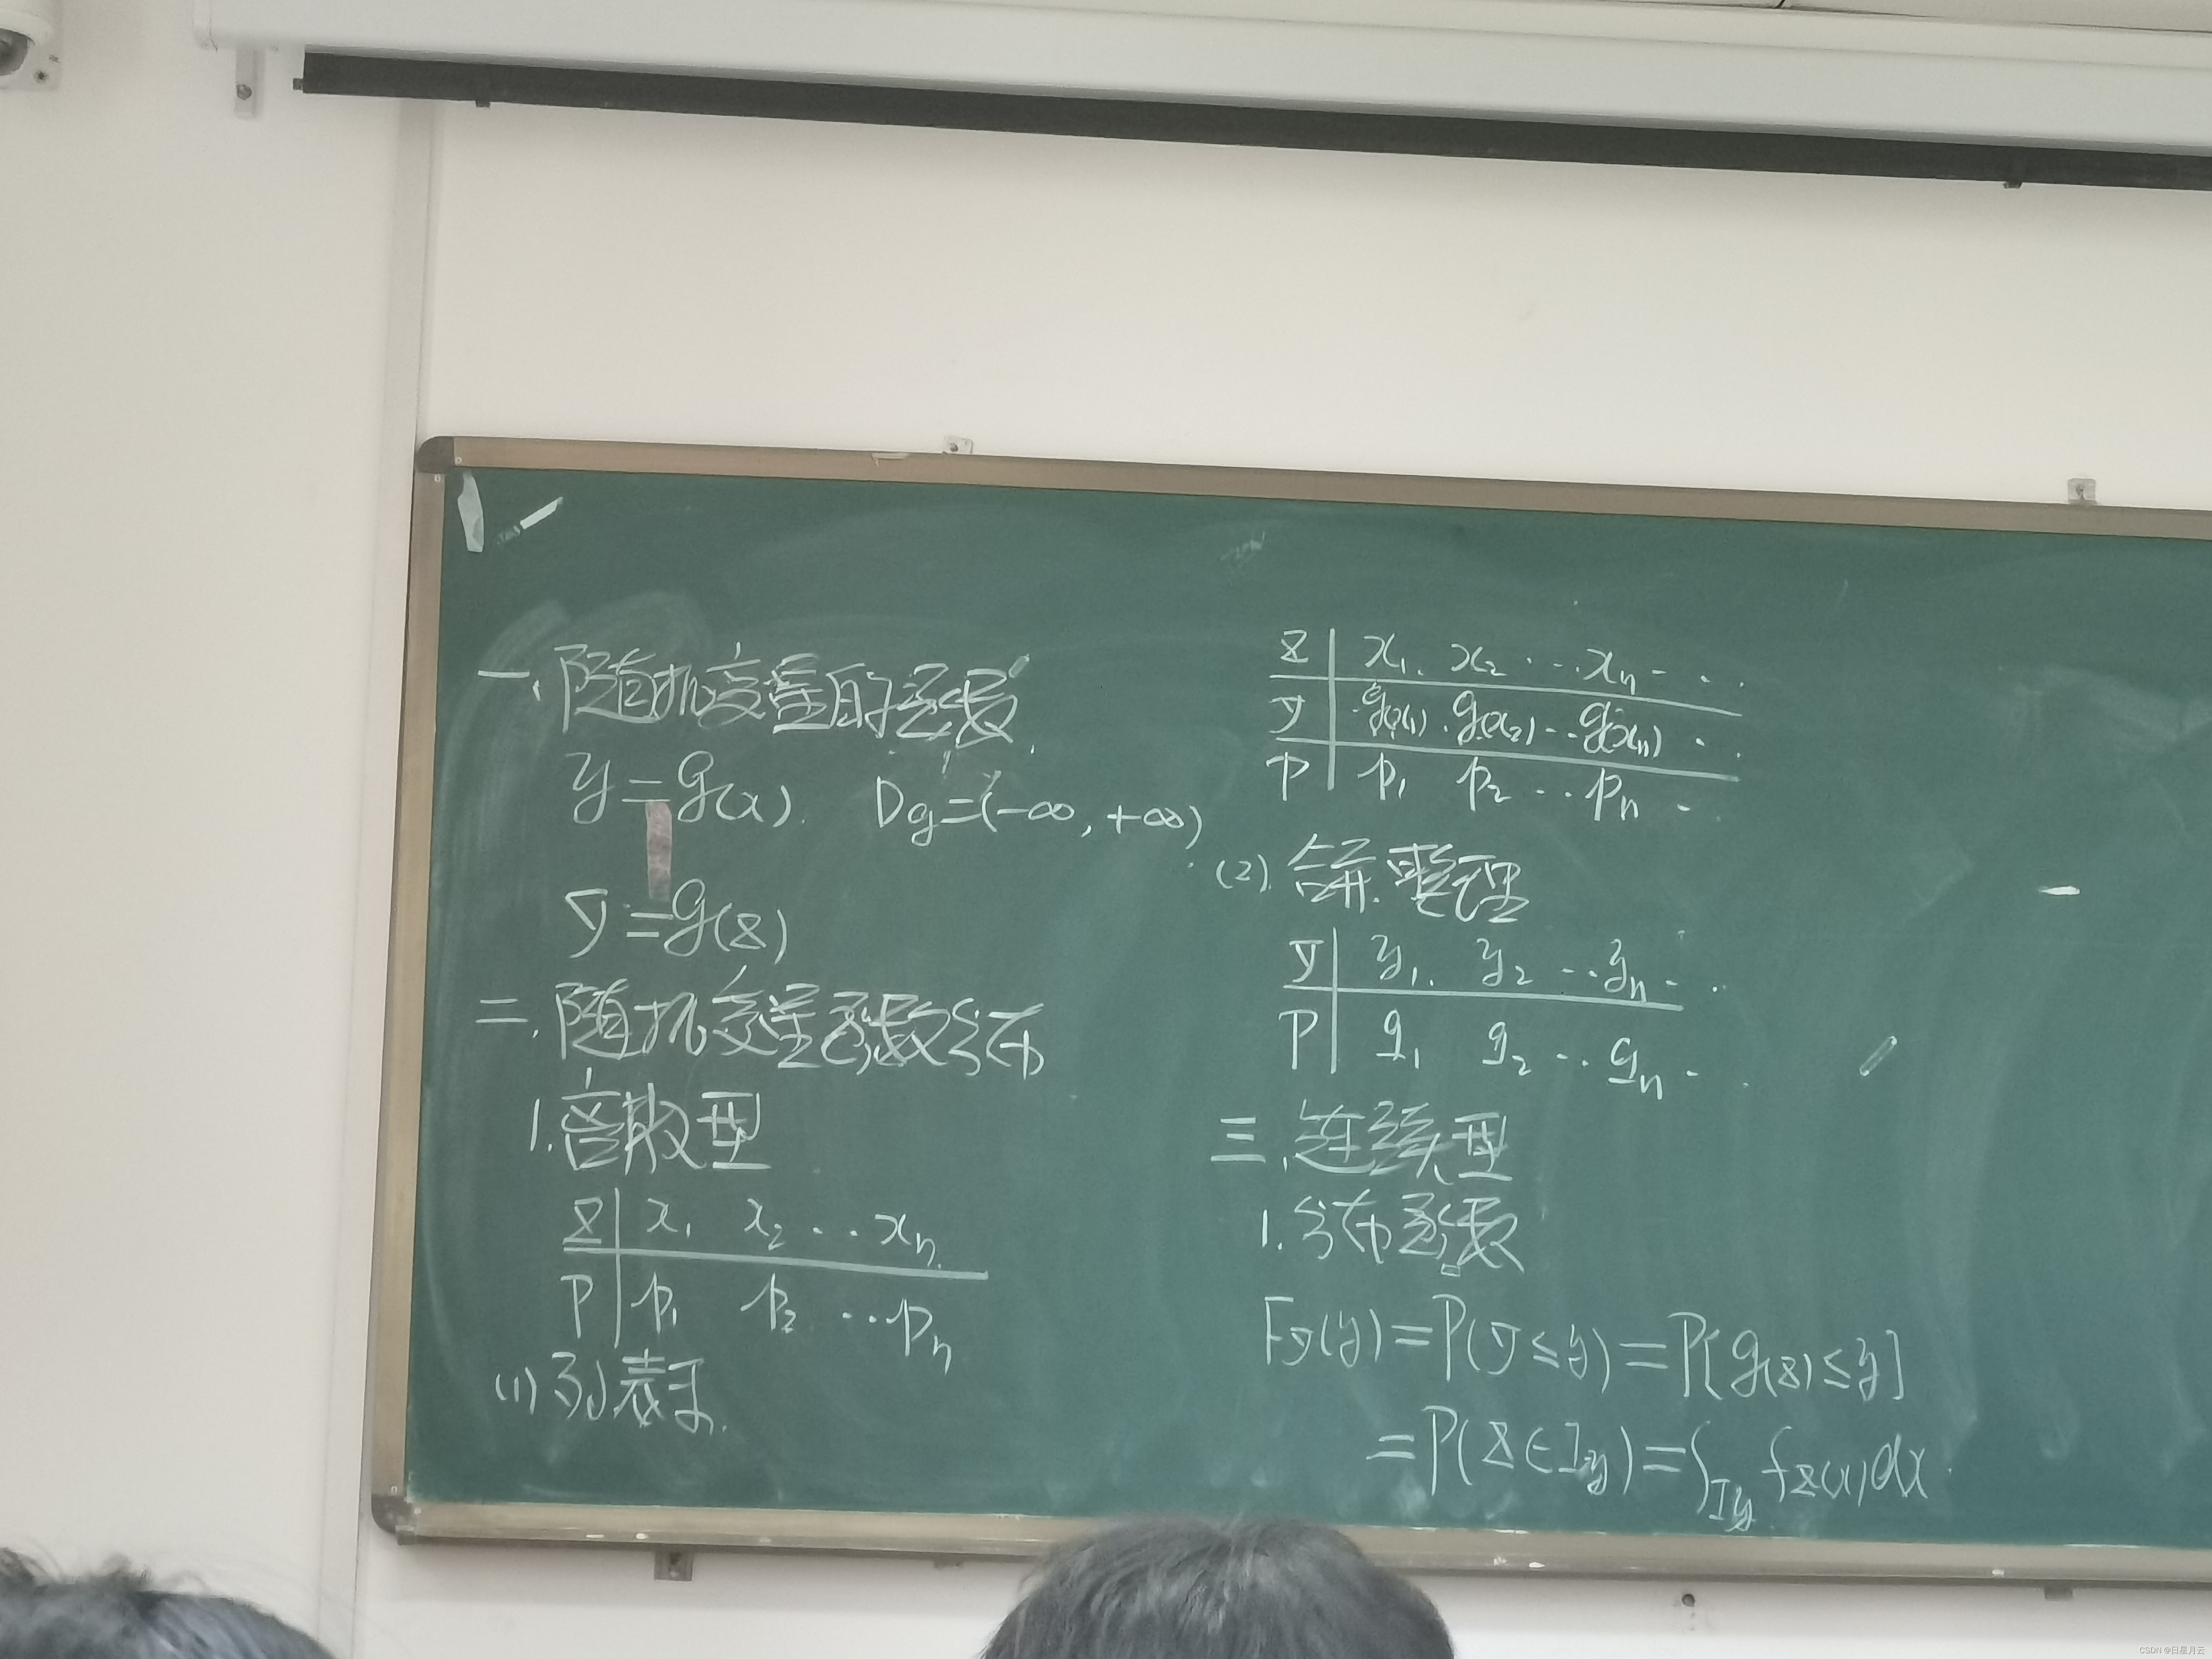 一、随机变量的函数
y=g(x). Dg=(-∞,+∞)
Y=g(X)
二、随机变量函数分布
1.离散型
X | x₁ x₂ ... xₙ
P | p₁ p₂ ... pₙ
(1) 列表示
X | x₁. x₂ ... xₙ ...
Y | g(x₁). g(x₂) ... g(xₙ) ...
P | p₁ p₂ ... pₙ ...
(2). 合并.整理
Y | y₁. y₂ ... yₙ ...
P | q₁ q₂ ... qₙ ...
三、连续型
1.分布函数
F_Y(y)=P(Y≤y)=P[g(X)≤y]
=P(X∈I_y)=∫_{I_y} f_X(x)dx.
CSDN @日星月云